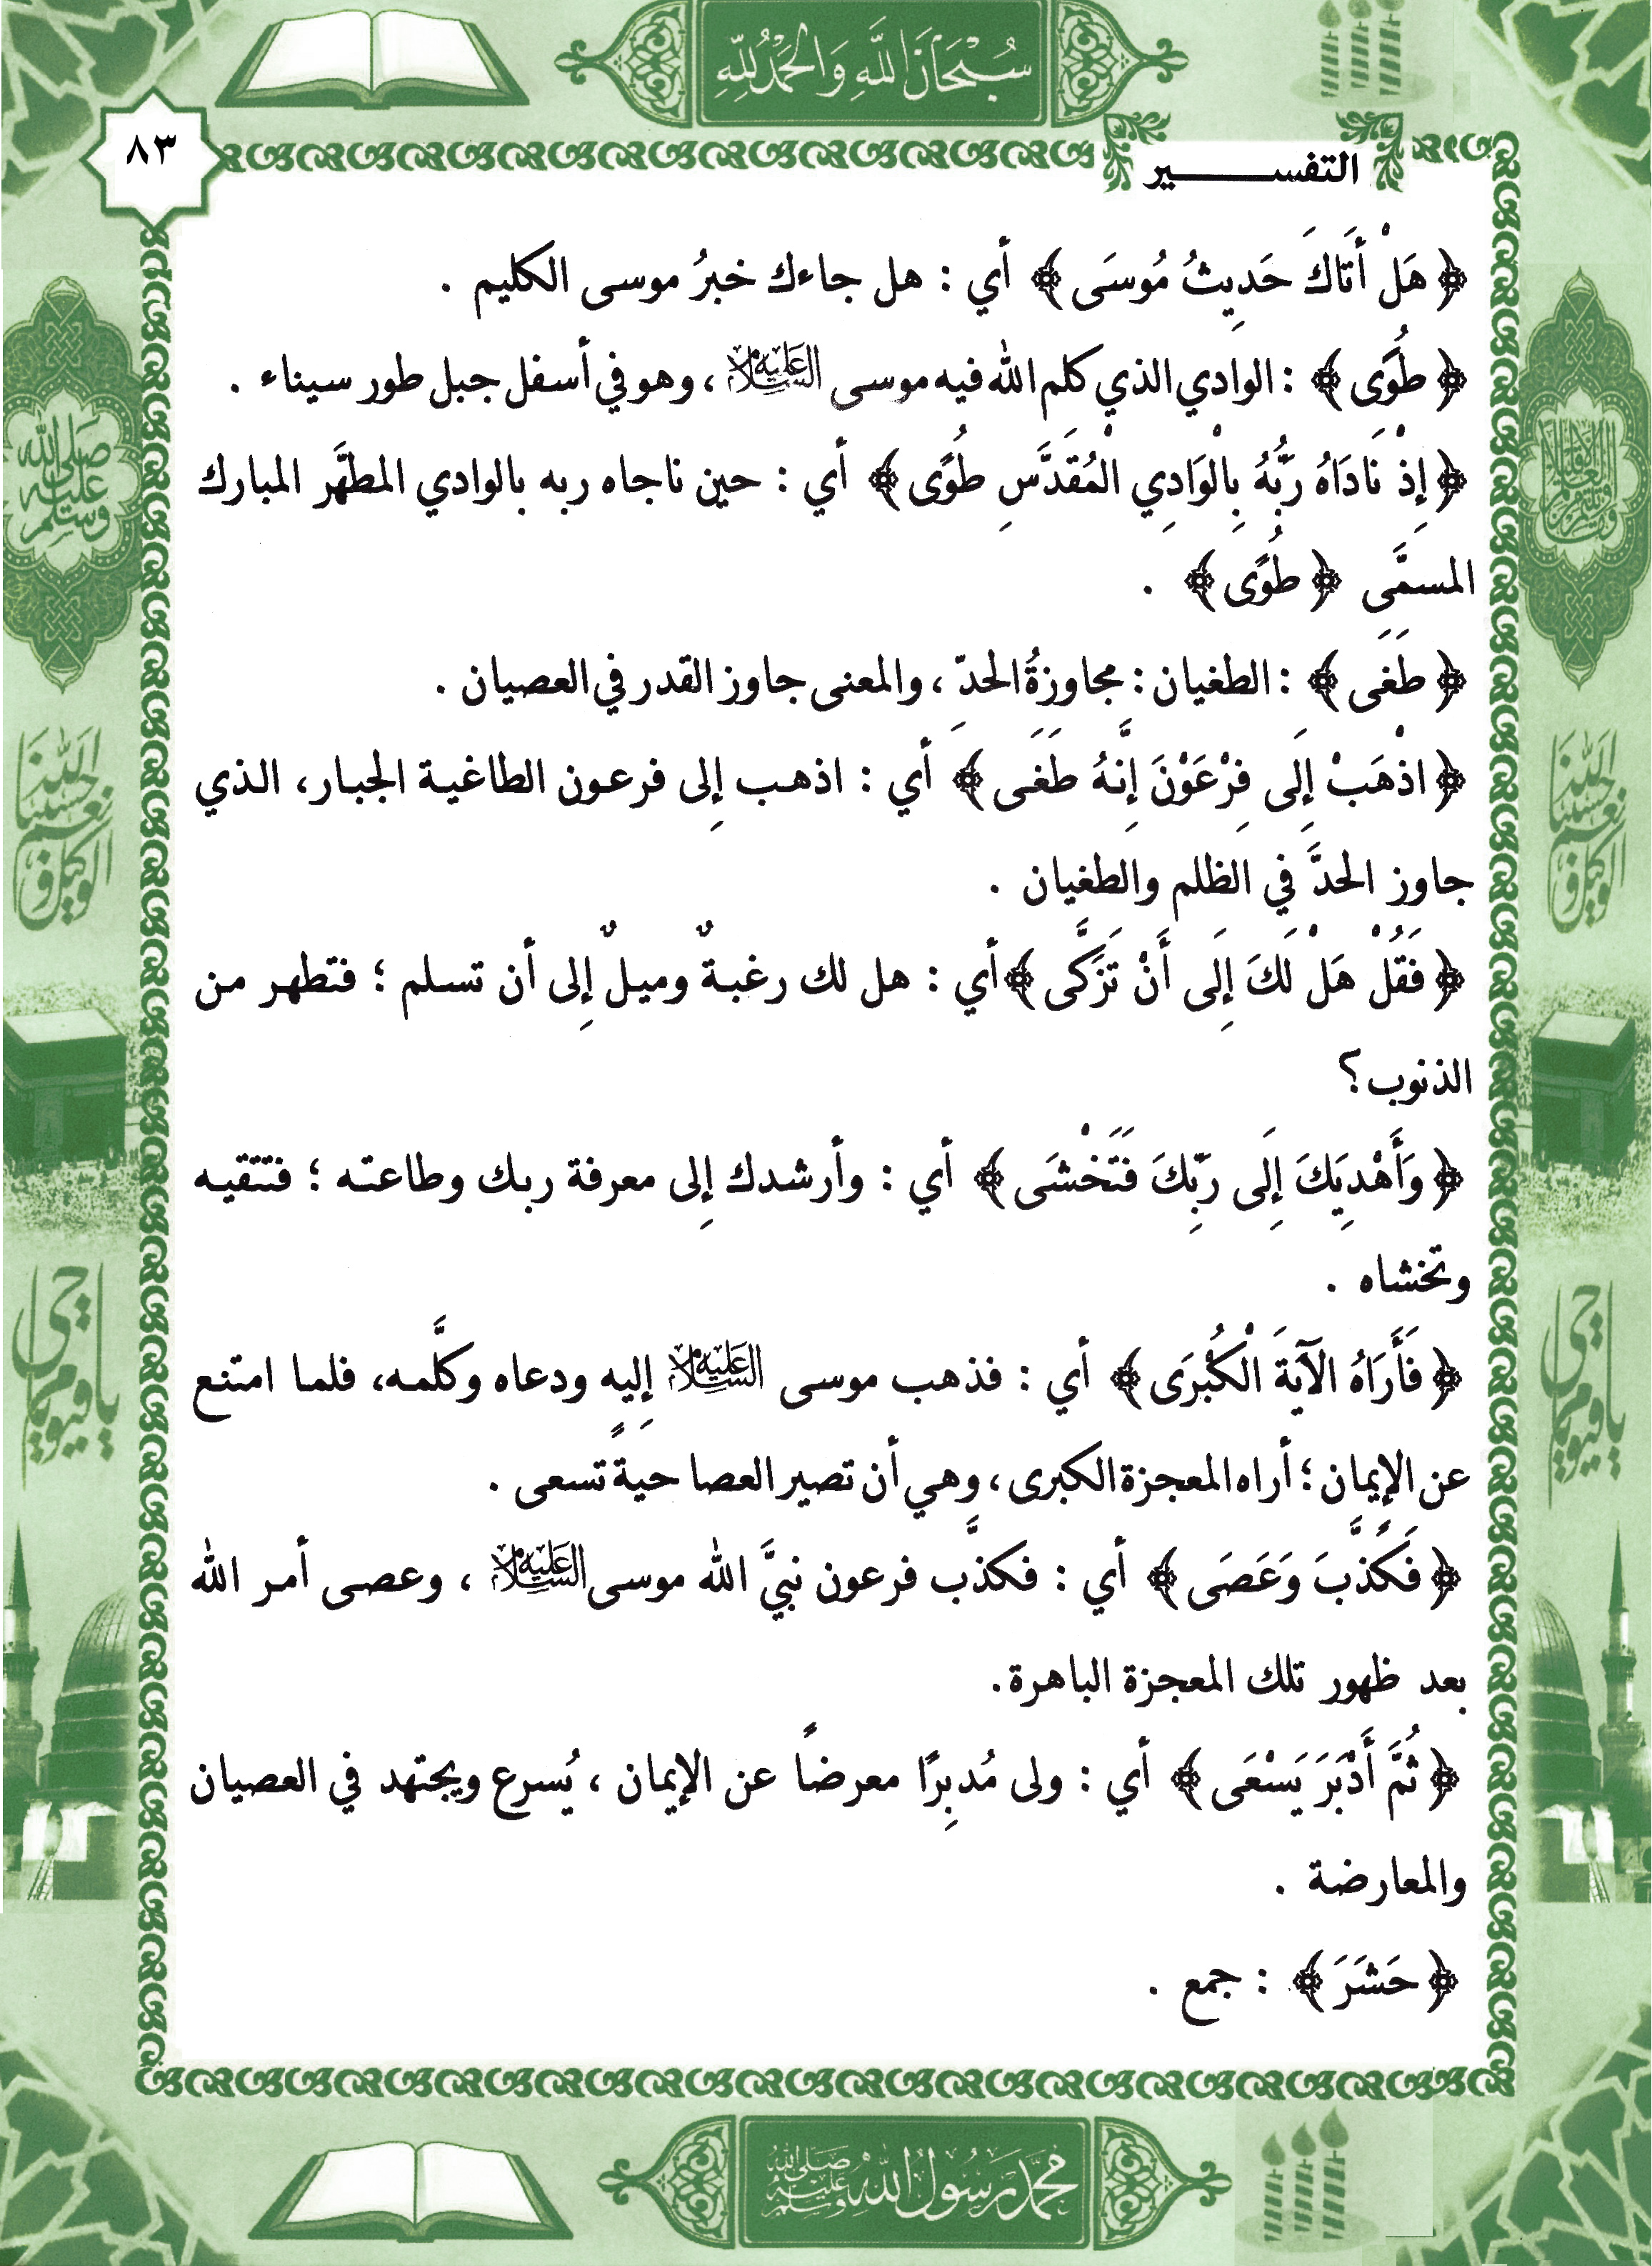 سُبْحَانَ اللَّهِ وَالْحَمْدُ لِلَّهِ
٨٣
التفسير
﴿هَلْ أَتَاكَ حَدِيثُ مُوسَى﴾ أي : هل جاءك خبرُ موسى الكليم .
﴿طُوًى﴾ : الوادي الذي كلم الله فيه موسى عَلَيْهِ السَّلَام ، وهو في أسفل جبل طور سيناء .
﴿إِذْ نَادَاهُ رَبُّهُ بِالْوَادِي الْمُقَدَّسِ طُوًى﴾ أي : حين ناجاه ربه بالوادي المطهَّر المبارك
المسمَّى ﴿طُوًى﴾ .
﴿طَغَى﴾ : الطغيان : مجاوزةُ الحدّ ، والمعنى جاوز القدر في العصيان .
﴿اذْهَبْ إِلَى فِرْعَوْنَ إِنَّهُ طَغَى﴾ أي : اذهب إِلى فرعون الطاغية الجبار، الذي
جاوز الحدَّ في الظلم والطغيان .
﴿فَقُلْ هَلْ لَكَ إِلَى أَنْ تَزَكَّى﴾ أي : هل لك رغبةٌ وميلٌ إِلى أن تسلم ؛ فتطهر من
الذنوب؟
﴿وَأَهْدِيَكَ إِلَى رَبِّكَ فَتَخْشَى﴾ أي : وأرشدك إِلى معرفة ربك وطاعته ؛ فتتقيه
وتخشاه .
﴿فَأَرَاهُ الْآيَةَ الْكُبْرَى﴾ أي : فذهب موسى عَلَيْهِ السَّلَام إِليه ودعاه وكلَّمه، فلما امتنع
عن الإِيمان ؛ أراه المعجزة الكبرى ، وهي أن تصير العصا حيةً تسعى .
﴿فَكَذَّبَ وَعَصَى﴾ أي : فكذَّب فرعون نبيَّ الله موسى عَلَيْهِ السَّلَام ، وعصى أمر الله
بعد ظهور تلك المعجزة الباهرة.
﴿ثُمَّ أَدْبَرَ يَسْعَى﴾ أي : ولى مُدبِرًا معرضاً عن الإيمان ، يُسرع ويجتهد في العصيان
والمعارضة .
﴿حَشَرَ﴾ : جمع .
صلى الله عليه وسلم
حسبنا الله ونعم الوكيل
حسبنا الله ونعم الوكيل
يا حي يا قيوم
يا حي يا قيوم
محمد رسول الله صلى الله عليه وسلم